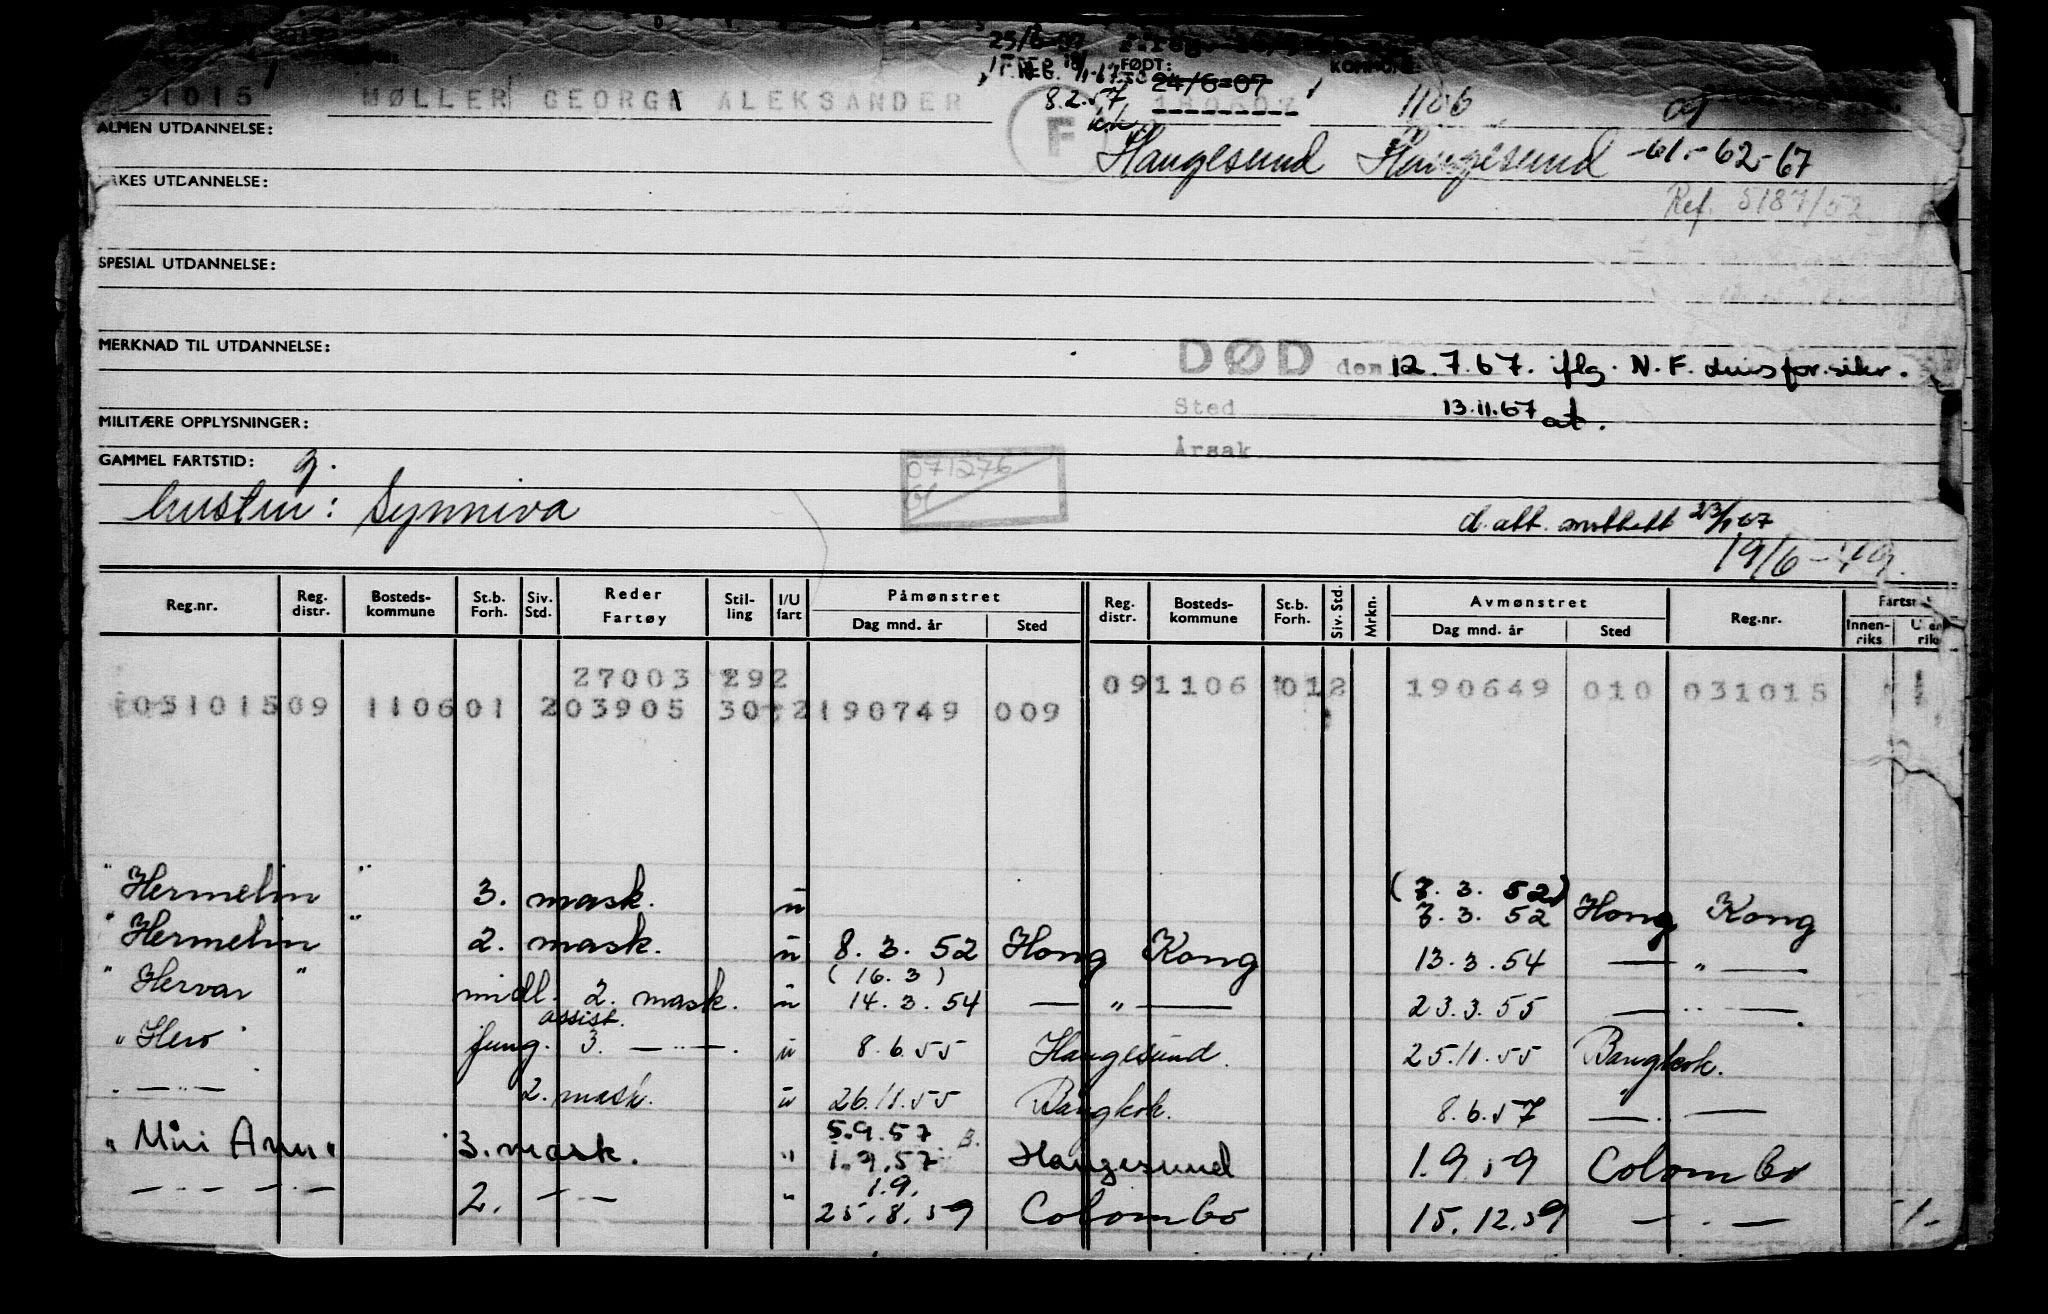 25/6-07
FØDT:
KOMMUNE:
24/6-07
31015 MØLLER GEORG ALEKSANDER 180607 1106 09
8.2.57
F
ALMEN UTDANNELSE:
Haugesund Haugesund -61-62-67
YRKES UTDANNELSE:
Ref. 5187/52
SPESIAL UTDANNELSE:
MERKNAD TIL UTDANNELSE:
DØD den 12.7.67. iflg. N.F. livsfor.sikr.
Sted 13.11.67 at.
MILITÆRE OPPLYSNINGER:
Årsak
GAMMEL FARTSTID: g.
071276
hustru: Synniva
d.att. mottatt 23/1 67
19/6-49.
Reg.nr. Reg. distr. Bosteds-kommune St.b. Forh. Siv. Std. Reder Fartøy Stil-ling I/U fart Påmønstret Dag mnd. år Sted Reg. distr. Bosteds-kommune St.b. Forh. Siv. Std. Mrkn. Avmønstret Dag mnd. år Sted Reg.nr. Fartst Innen-riks Uten riks
27003 292 091106 012 190649 010 031015
031015 09 1106 01 203905 30 2 190749 009
"Hermelin" 3. mask. u (7.3.52) 7.3.52 Hong Kong
"Hermelin" 2. mask. u 8.3.52 Hong Kong 13.3.54 — " —
(16.3)
"Hervar" midl. 2. mask. u 14.3.54 — " — 23.3.55 — " —
assist.
"Hero" fung. 3. — " —. u 8.6.55 Haugesund. 25.11.55 Bangkok.
— " — 2. mask. u 26.11.55 Bangkok. 8.6.57 — " —
5.9.57 B.
3. mask. " 1.9.57 Haugesund 1.9.59 Colombo
1.9.
— " — " — 2. — " — " 25.8.59 Colombo 15.12.59 — " —